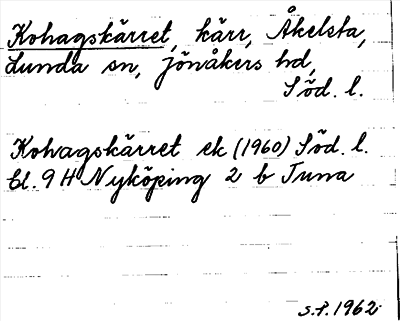 Kohagskärret, kärr, Åkelsta,
Lunda sn, Jönåkers hd,
Söd. l.
Kohagskärret ek (1960) Söd. l.
bl. 9 H Nyköping 2 b Tuna
S.P. 1962